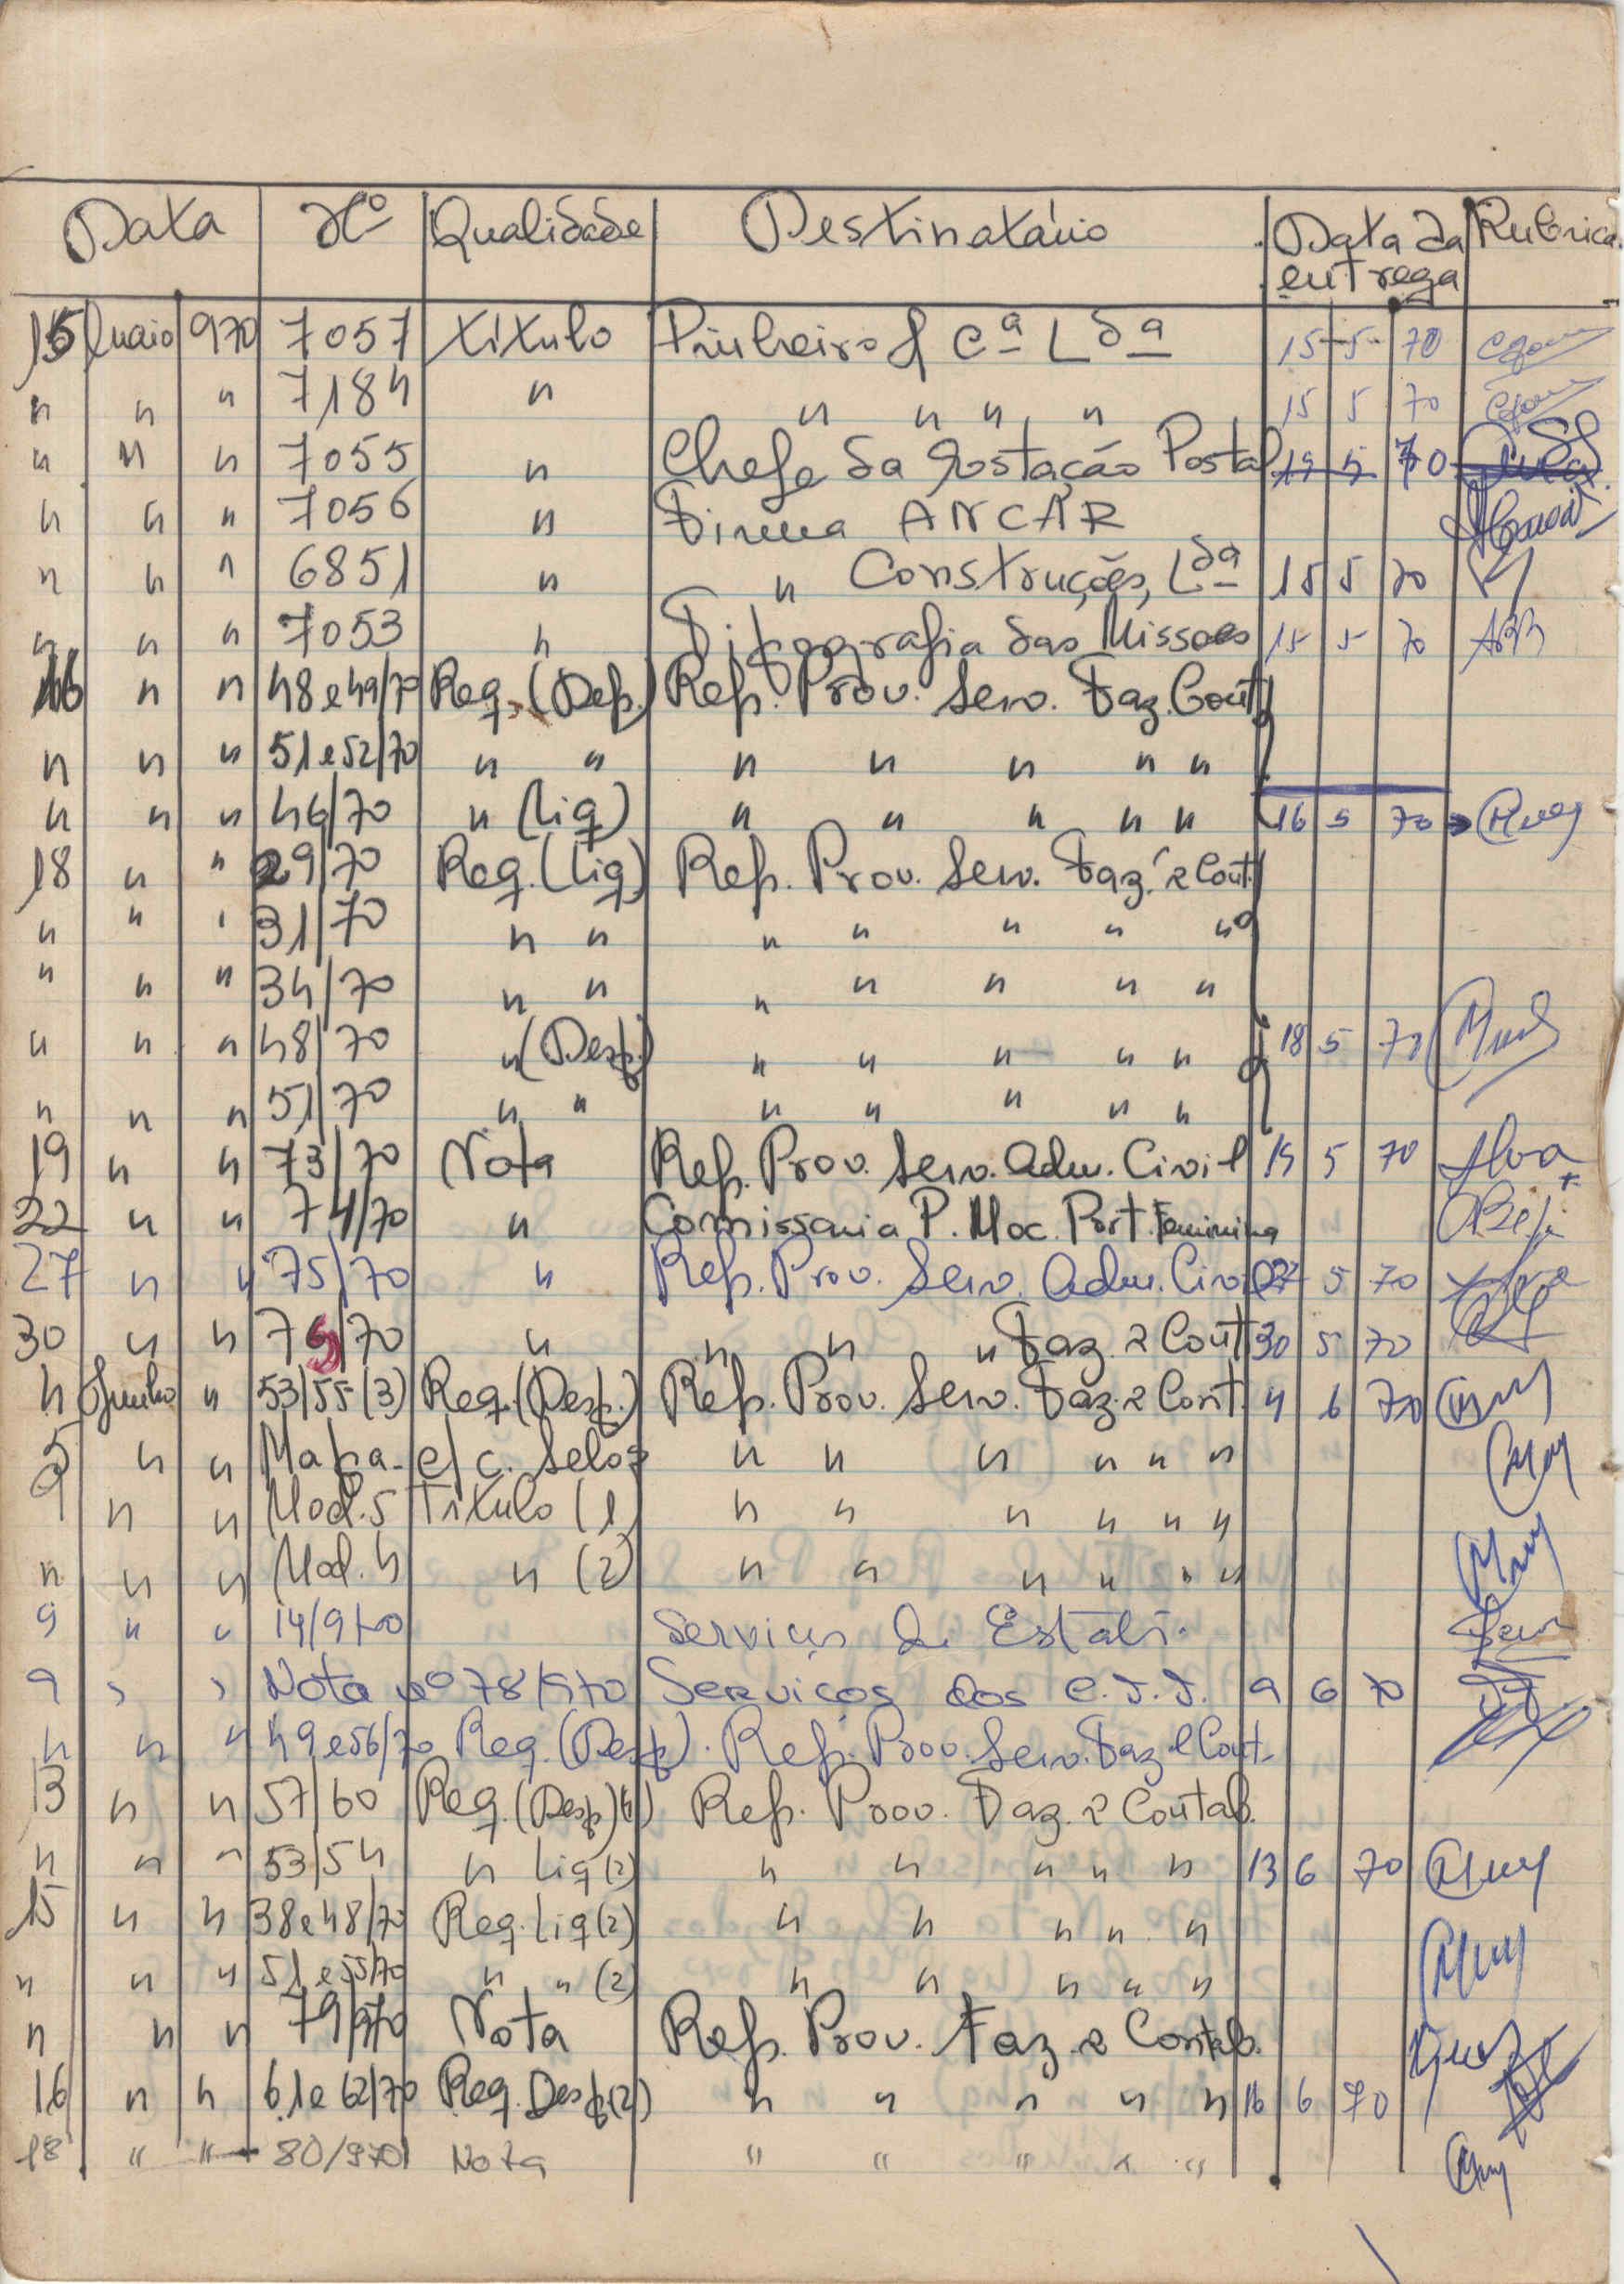 Data Nº Qualidade Destinatário Data da entrega Rubrica
15 maio 970 7057 Título Pinheiro & Cª Ldª 15 5 70
" " " 7184 " " " " " 15 5 70
" " " 7055 " Chefe da Estação Postal 19 5 70
" " " 7056 " Firma ANCAR
" " " 6851 " " Construções, Ldª 15 5 70
" " " 7053 " Tipografia das Missoes 15 5 70
16 " " 48 e 49/70 Req. (Desp.) Rep. Prov. Serv. Faz. Cont
" " " 51 e 52/70 " " " " " " "
" " " 46/70 " (Liq) " " " " " 16 5 70
18 " " 29/70 Req. (Liq) Rep. Prov. Serv. Faz. e Cont.
" " " 31/70 " " " " " " "
" " " 34/70 " " " " " " "
" " " 48/70 " (Desp.) " " " " " 18 5 70
" " " 51/70 " " " " " " "
19 " " 73/70 Nota Rep. Prov. Serv. Adm. Civil 19 5 70
22 " " 74/70 " Comissaria P. Moc. Port. Feminina
27 " " 75/70 " Rep. Prov. Serv. Adm. Civil 27 5 70
30 " " 70 " " " " Faz. e Cont 30 5 70
4 Junho " 53/55 (3) Req. (Desp.) Rep. Prov. Serv. Faz. e Cont. 4 6 70
5 " " Mapa - c/c. Selos " " " " " "
9 " " Mod. 5 Título (1) " " " " " "
" " " Mod. 4 " (2) " " " " " "
9 " " 14/9/70 Serviços de Estati.
9 " " Nota nº 78/970 Serviços dos C.T.T. 9 6 70
" " " 49 e 56/70 Req. (Desp). Rep. Prov. Serv. Faz e Cont.
13 " " 57/60 Req. (Desp) (4) Rep. Prov. Faz. e Contab.
" " " 53/54 " Liq (2) " " " " " 13 6 70
15 " " 38 e 48/70 Req. Liq (2) " " " " "
" " " 51 e 55/70 " " (2) " " " " "
" " " 79/970 Nota Rep. Prov. Faz. e Contab.
16 " " 61 e 62/70 Req. Desp (2) " " " " " 16 6 70
18 " " 80/970 Nota " " " " "